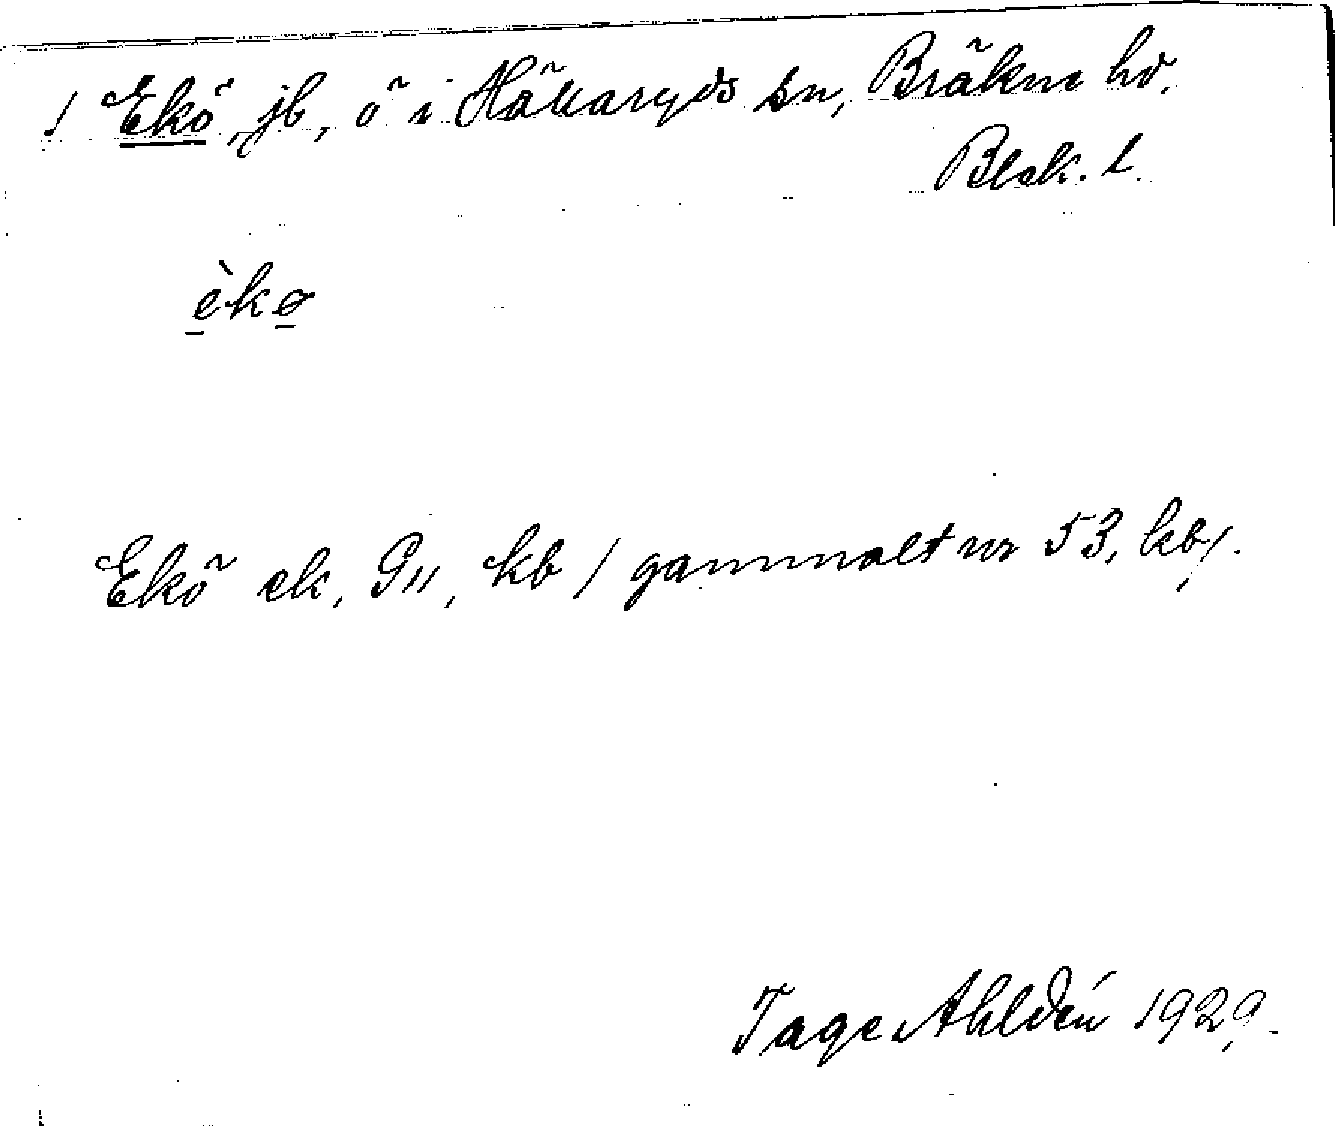 1 Ekö, jb, ö i Hällaryds sn, Bräkne hd.
Blek. l.
èkø
Ekö ek, G11, kb / gammalt nr 53, kb/.
Tage Ahldén 1929.